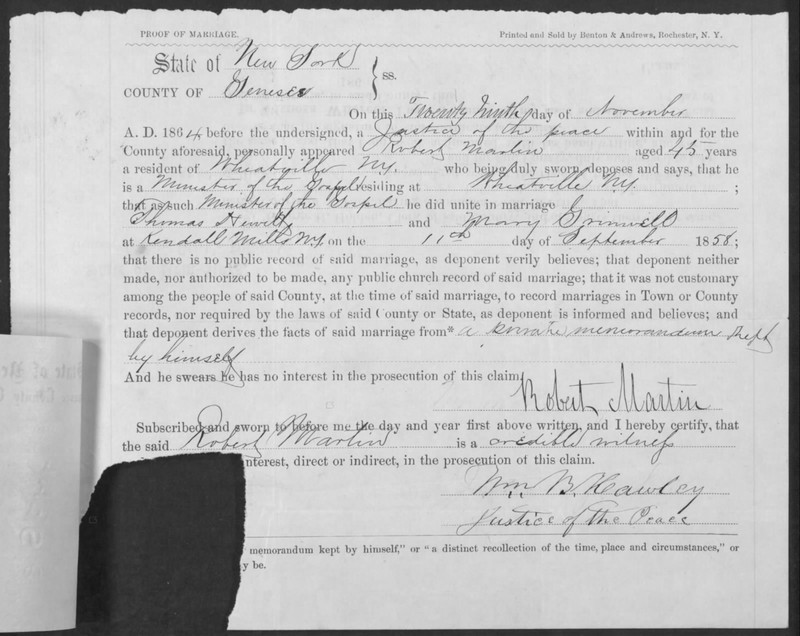 PROOF OF MARRIAGE. Printed and Sold by Benton & Andrews, Rochester, N. Y.
State of New York
COUNTY OF Genesee } ss.
On this Twenty Ninth day of November
A. D. 1864 before the undersigned, a Justice of the peace within and for the
County aforesaid, personally appeared Robert Martin aged 45 years
a resident of Wheatville NY. who being duly sworn, deposes and says, that he
is a Minister of the Gospel residing at Wheatville NY. ;
that as such Minister of the Gospel he did unite in marriage
Thomas Hewitt and Mary Grinnell
at Kendall Mills NY on the 11th day of September 1858;
that there is no public record of said marriage, as deponent verily believes; that deponent neither
made, nor authorized to be made, any public church record of said marriage; that it was not customary
among the people of said County, at the time of said marriage, to record marriages in Town or County
records, nor required by the laws of said County or State, as deponent is informed and believes; and
that deponent derives the facts of said marriage from* a private memorandum kept
by himself
And he swears he has no interest in the prosecution of this claim.
Robert Martin
Subscribed and sworn to before me the day and year first above written, and I hereby certify, that
the said Robert Martin is a credible witness
interest, direct or indirect, in the prosecution of this claim.
Wm. B. Hawley
Justice of the Peace
memorandum kept by himself," or "a distinct recollection of the time, place and circumstances," or
y be.